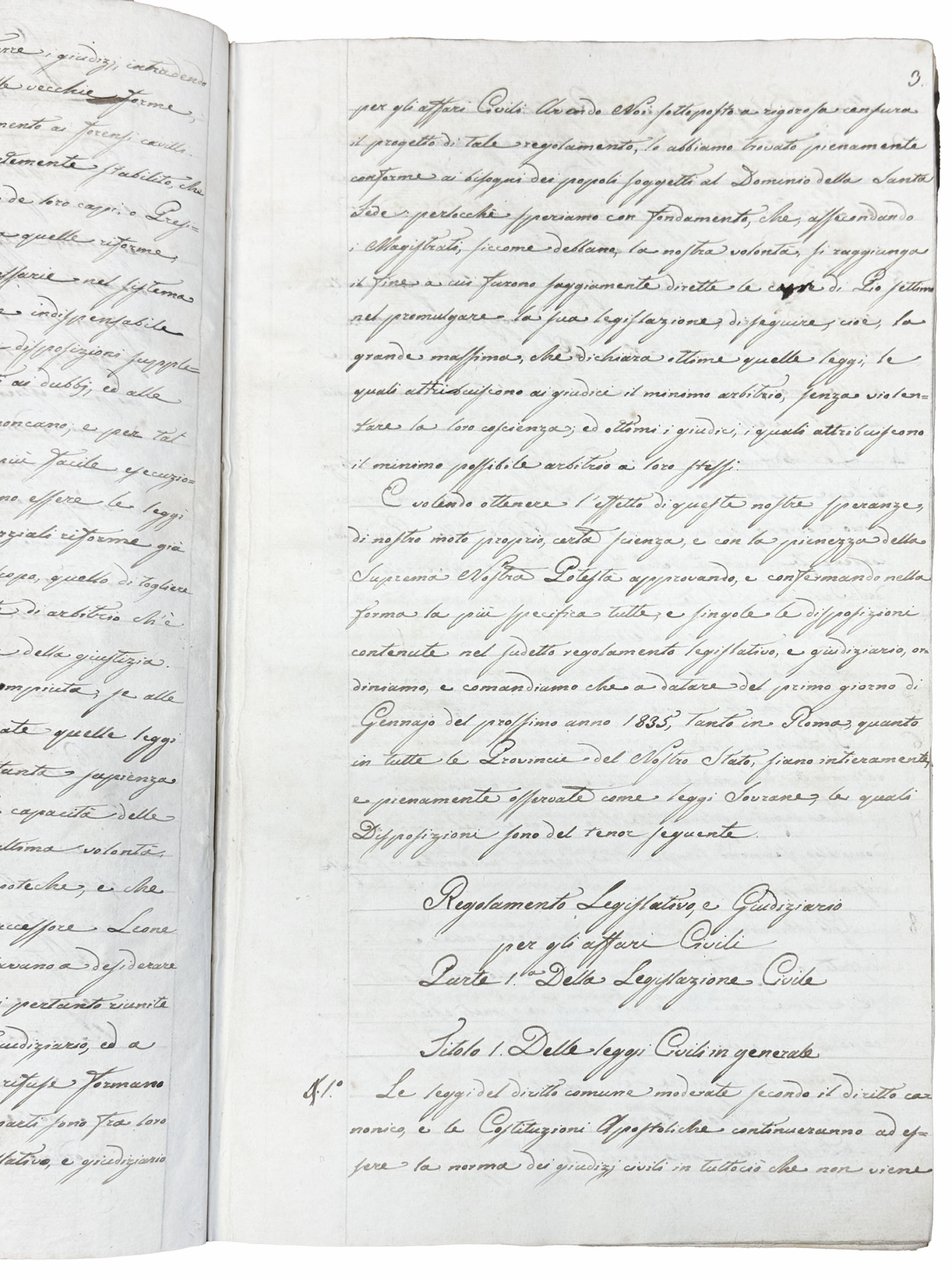 rre i giudizj, intridendo
lle vecchie forme,
mento ai forensi cavillo-
temente stabilito, che
de loro cappi, o Presi=
a quelle riforme,
essarie nel sistema
e indispensabile
disposizioni supple=
i ai dubbj, ed alle
mancano; e per tal
più facile esecuzio=
no essere le leggi
arziali riforme già
copo, quello di togliere
di arbitrio ch'è
e della giustizia.
ompiuta, se alle
ate quelle leggi
tanta sapienza
capacità delle
ultima volontà,
poteche, e che
uccessore Leone
avano a desiderare
i pertanto riunite
iudiziario, ed a
rifuse formano
parti sono fra loro
lativo, e giudiziario
3.
per gli affari Civili. Avendo Noi sottoposto a rigorosa censura
il progetto di tale regolamento, lo abbiamo trovato pienamente
conforme ai bisogni dei popoli soggetti al Dominio della Santa
Sede; perlocchè speriamo con fondamento, che, assecondando
i Magistrati, siccome debbano, la nostra volontà, si raggiunga
il fine a cui furono saggiamente dirette le cure di Pio settimo
nel promulgare la sua legislazione, di seguire, cioè, la
grande massima, che dichiara ottime quelle leggi, le
quali attribuiscono ai giudici il minimo arbitrio, senza violen=
tare la loro coscienza; ed ottimi i giudici, i quali attribuiscono
il minimo possibile arbitrio a loro stessi.
E volendo ottenere l'effetto di queste nostre speranze,
di nostro moto proprio, certa scienza, e con la pienezza della
Suprema Nostra Potestà approvando, e confermando nella
forma la più specifica tutte, e singole le disposizioni
contenute nel sudetto regolamento legislativo, e giudiziario, or=
diniamo, e comandiamo che a datare del primo giorno di
Gennajo del prossimo anno 1835, tanto in Roma, quanto
in tutte le Provincie del Nostro Stato, siano intieramente,
e pienamente osservate come leggi Sovrane, le quali
Disposizioni sono del tenor seguente.
Regolamento Legislativo, e Giudiziario
per gli affari Civili
Parte 1.a Della Legislazione Civile
Titolo 1. Delle leggi Civili in generale
§. 1.o Le leggi del diritto comune moderate secondo il diritto ca=
nonico, e le Costituzioni Apostoliche continueranno ad es=
sere la norma dei giudizj civili in tuttociò che non viene